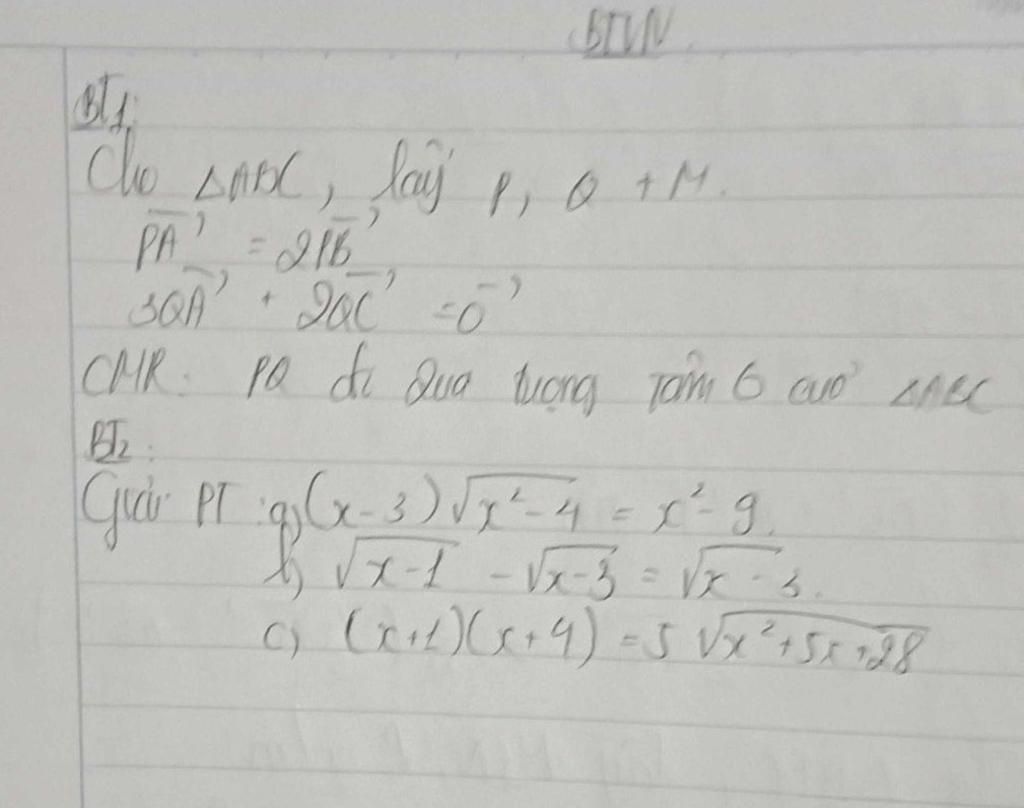 BTVN
BT1:
Cho △ABC, lấy P, Q + M.
\overrightarrow{PA} = 2\overrightarrow{PB}
3\overrightarrow{QA} + 2\overrightarrow{QC} = \overrightarrow{0}
CMR: PQ đi Qua trọng Tâm G của △ABC
BT2:
Giải PT: a, (x-3)√(x²-4) = x²-9.
b, √(x-1) - √(x-3) = √(x-3).
c, (x+1)(x+4) = 5√(x²+5x+28)